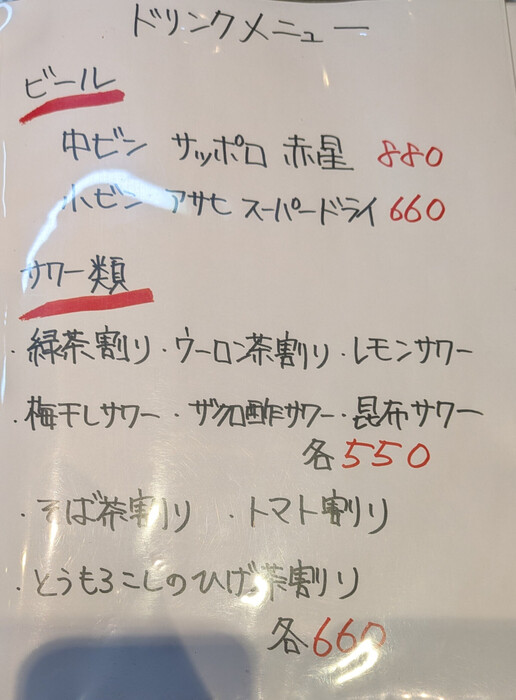 ドリンクメニュー
ビール
中ビン サッポロ 赤星 880
小ビン アサヒ スーパードライ 660
サワー類
・緑茶割り・ウーロン茶割り・レモンサワー
・梅干しサワー・ザクロ酢サワー・昆布サワー
各550
・そば茶割り ・トマト割り
・とうもろこしのひげ茶割り
各660